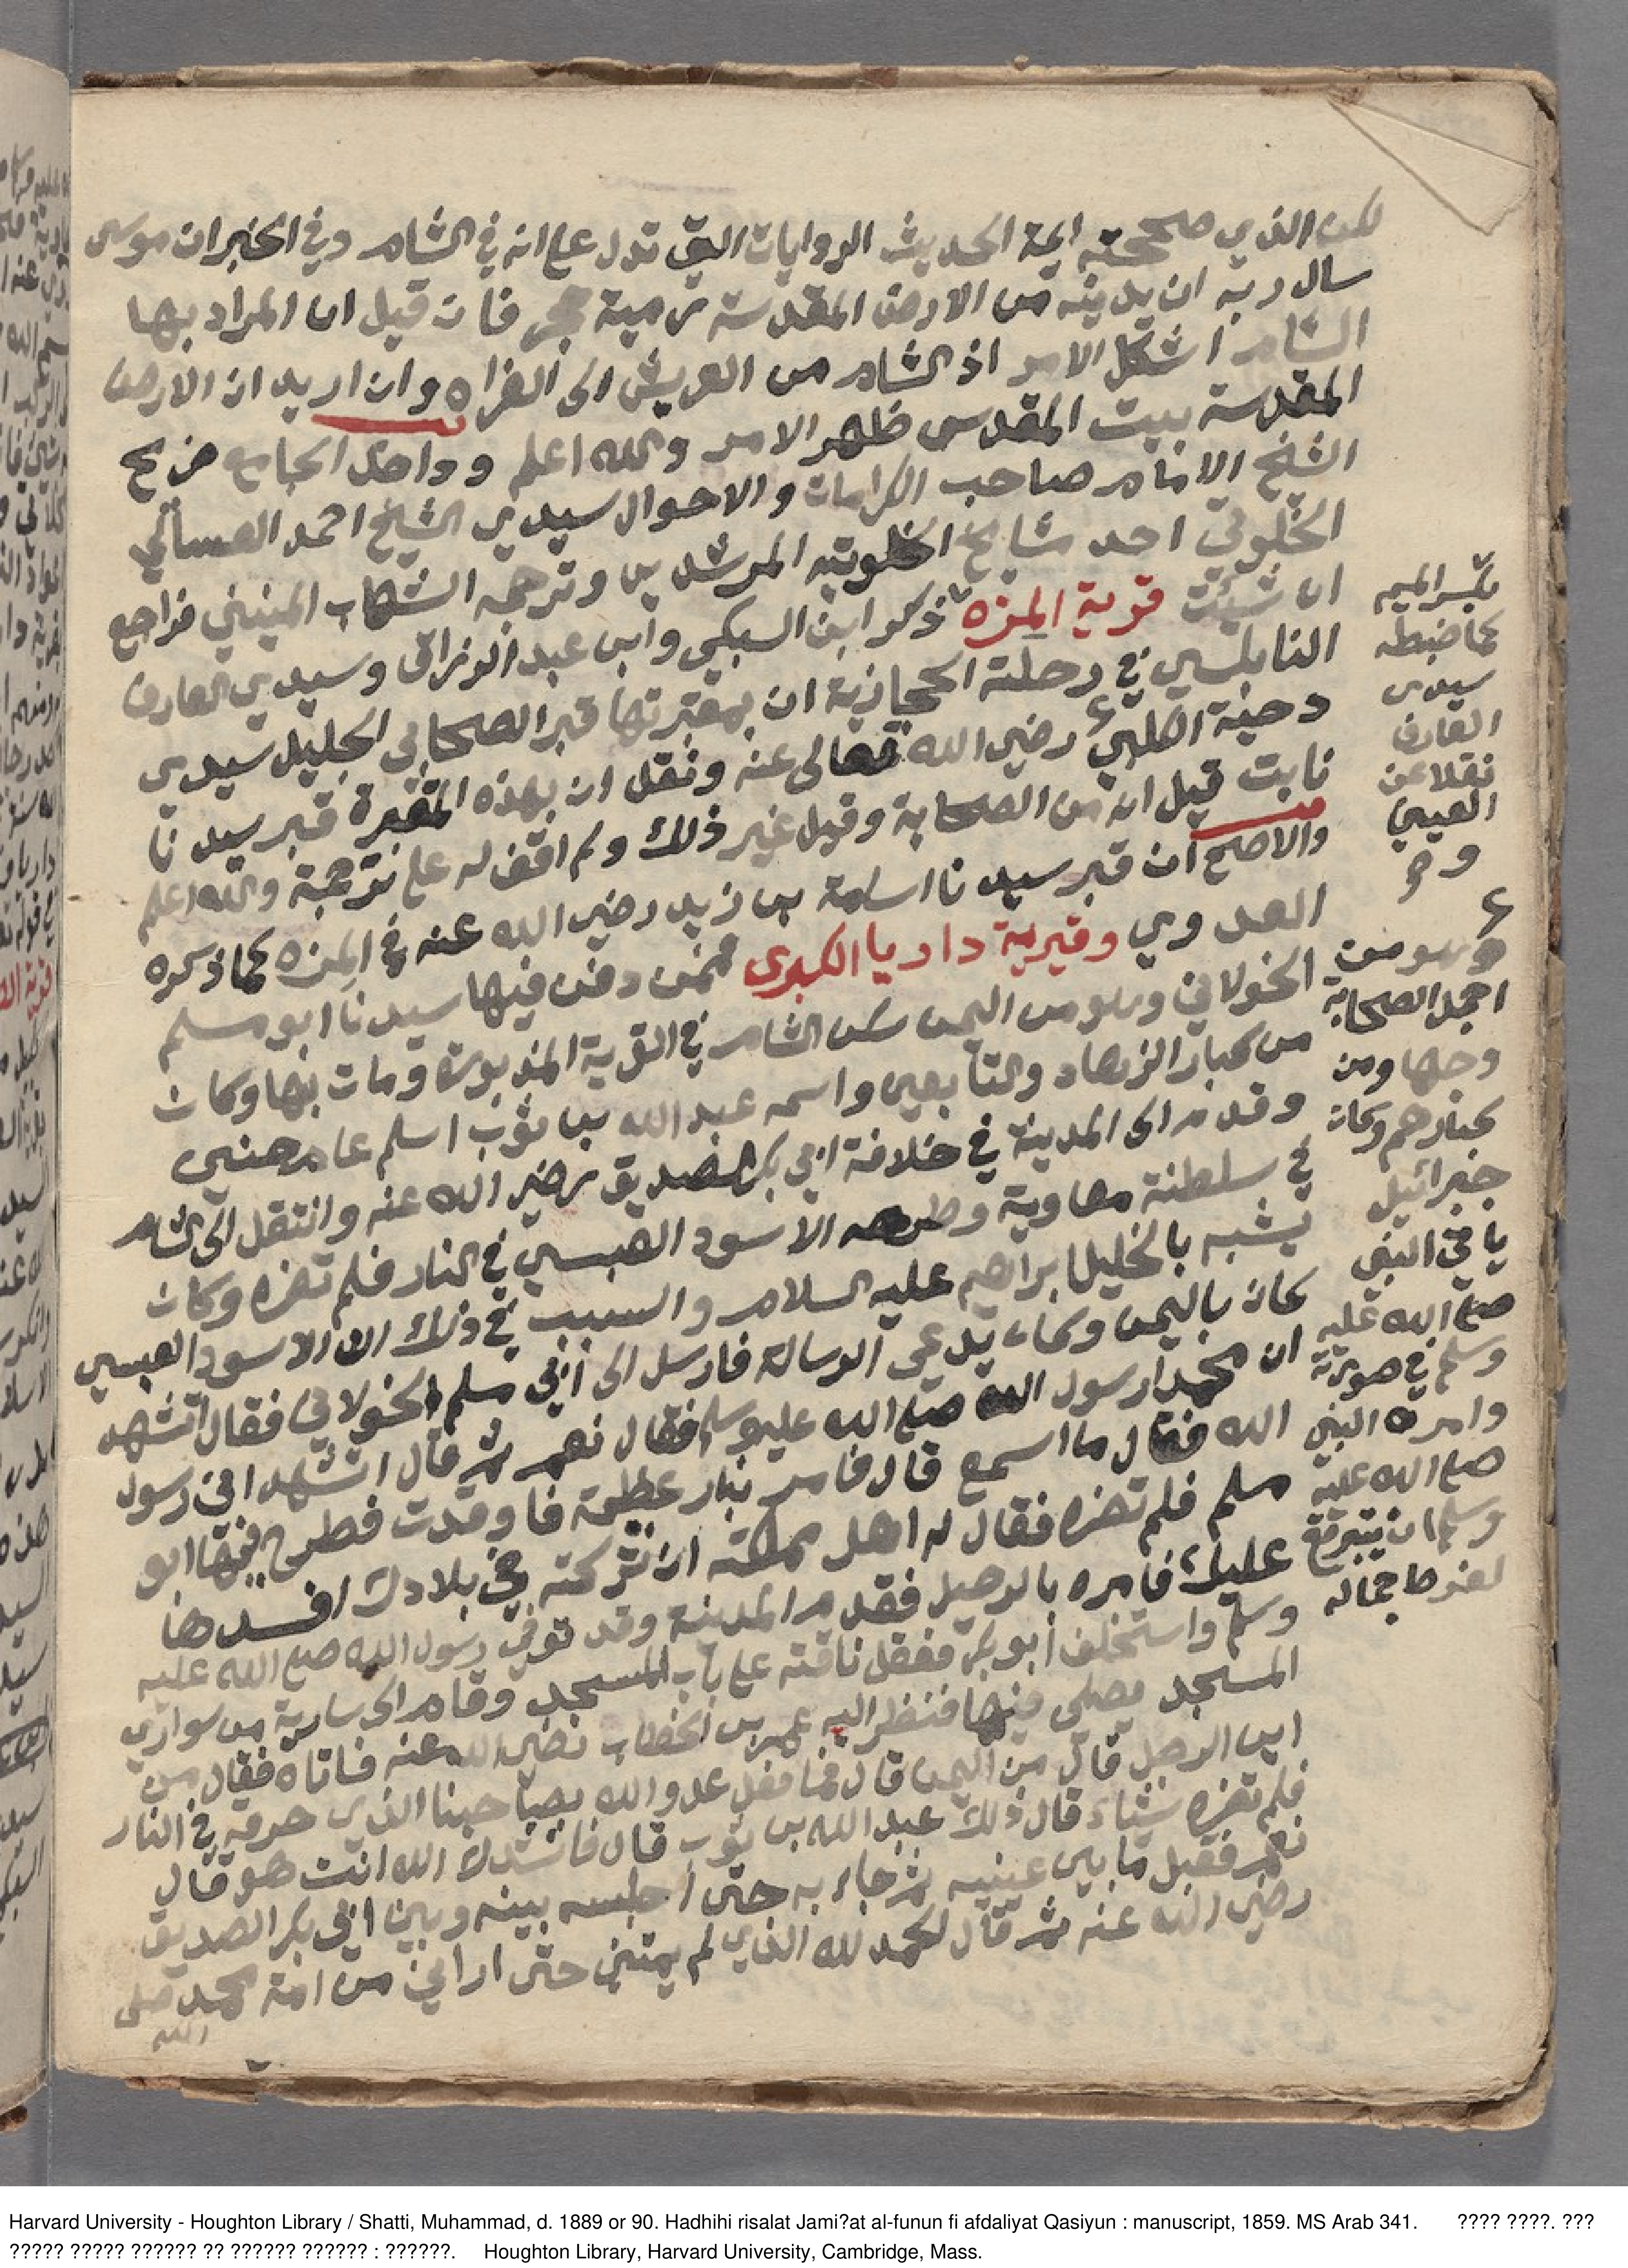 لكن الذي صححته ايمة الحديث الروايات التي تدل على انه في الشام وفي الخبر ان موسى
سال ربه ان يدنيه من الارض المقدسة رمية حجر فان قيل ان المراد بها
الشام اشكل الامر اذ الشام من العريش الى الفراه وان اريد ان الارض
المقدسة بيت المقدس ظهر الامر والله اعلم وداخل الجامع ضريح
الشيخ الامام صاحب الكرامات والاحوال سيدي الشيخ احمد العسالي
الخلوتي احد مشايخ الخلوتيه المرشدين وترجمه الشهاب المنيني فراجع
ان شيئت قرية المزه ذكر ابن السبكي وابن عبد الرزاق وسيدي العارف
النابلسي في رحلته الحجازية ان بمقبرتها قبر الصحابي الجليل سيدي
دحية الكلبي رضي الله تعالى عنه ونقل ان بهذه المقبرة قبر سيدنا
ثابت قيل انه من الصحابة وقيل غير ذلك ولم اقف له على ترجمة والله اعلم
والاصح ان قبر سيدنا اسامة بن زيد رضي الله عنه في المزه كما ذكره
العدوي وقيرية داريا الكبرى فممن دفن فيها سيدنا ابو مسلم
الخولاني وهو من اليمن سكن الشام في القرية المذبورة ومات بها وكان
من كبار الزهاد والتابعين واسمه عبد الله بن ثوب اسلم عام حنين
وقدم الى المدينة في خلافة ابي بكر الصديق رضي الله عنه وانتقل الى الشام
في سلطنة معاوية وطرحه الاسود العبسي في النار فلم تضره وكان
يشبه بالخليل ابراهيم عليه السلام والسبب في ذلك ان الاسود العبسي
كان باليمن وكان يدعي الرسالة فارسل الى ابي مسلم الخولاني فقال اتشهد
ان محمدا رسول الله صلى الله عليه وسلم فقال نعم ثم قال اتشهد اني رسول
الله فقال ما اسمع قال فامر بنار عظيمة فاوقدت فطرح فيها ابو
مسلم فلم تضره فقال له اهل مملكته ان تركته في بلادك افسدها
عليك فامره بالرحيل فقدم المدينة وقد توفي رسول الله صلى الله عليه
وسلم واستخلف ابو بكر فعقل ناقته على باب المسجد وقام الى سارية من سواري
المسجد يصلي فيها فنظر اليه عمر بن الخطاب رضي الله عنه فاتاه فقال من
اين الرجل قال من اليمن قال فما فعل عدو الله بصاحبنا الذي حرقه في النار
فلم تضره شياء قال ذلك عبد الله بن ثوب قال فانشدك الله انت هو قال
نعم فقبل ما بين عينيه ثم جاء به حتى اجلسه بينه وبين ابي بكر الصديق
رضي الله عنه ثم قال الحمد لله الذي لم يمتني حتى اراني من امة محمد صلى
الله
بكسر الميم
كما ضبطه
سيدي
العارف
نقلا عن
العيني
وهو من
اجمل الصحابة
وجها ومن
كبارهم وكان
جبرائيل
ياتي النبي
صلى الله عليه
وسلم في صورته
وامره النبي
صلى الله عليه
وسلم ان يتبرقع
لفرط جماله
Harvard University - Houghton Library / Shatti, Muhammad, d. 1889 or 90. Hadhihi risalat Jami?at al-funun fi afdaliyat Qasiyun : manuscript, 1859. MS Arab 341. ???? ????. ???
????? ????? ?????? ?? ?????? ?????? : ??????. Houghton Library, Harvard University, Cambridge, Mass.